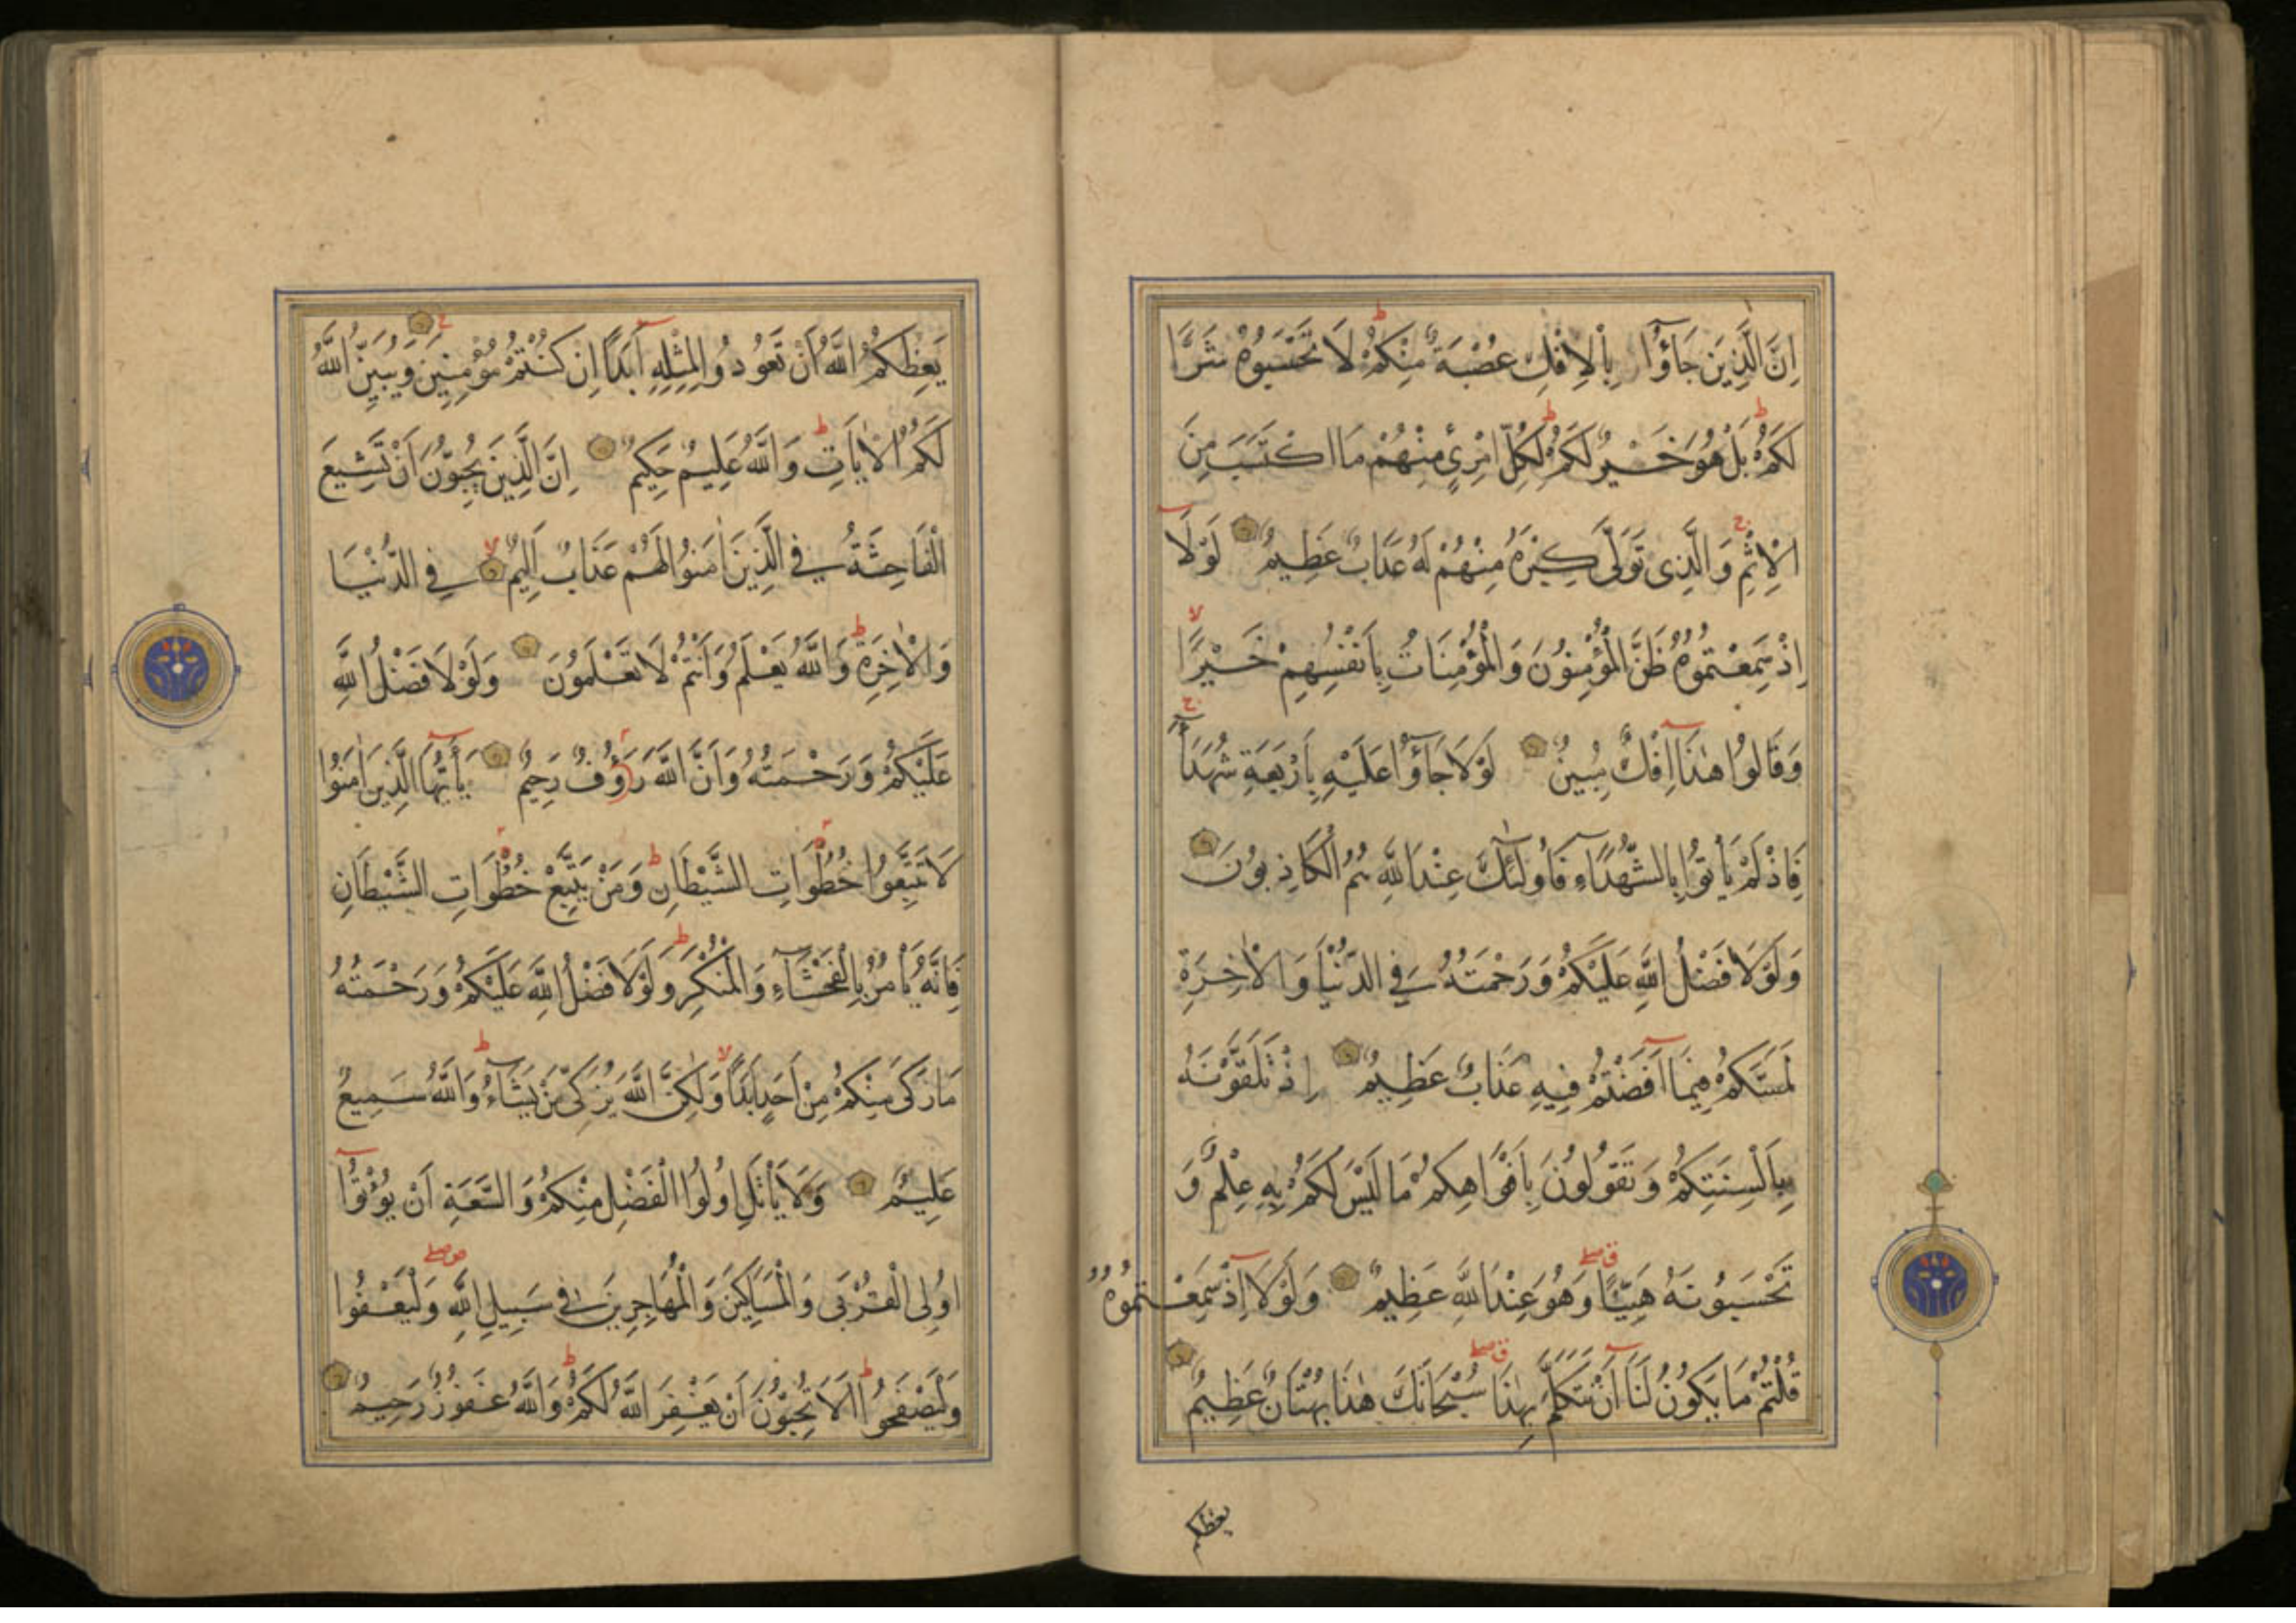 اِنَّ الَّذِينَ جَاؤُا بِالْاِفْكِ عُصْبَةٌ مِنْكُمْ لَا تَحْسَبُوهُ شَرًّا
لَكُمْ بَلْ هُوَ خَيْرٌ لَكُمْ لِكُلِّ امْرِئٍ مِنْهُمْ مَا اكْتَسَبَ مِنَ
الْاِثْمِ وَالَّذِى تَوَلَّى كِبْرَهُ مِنْهُمْ لَهُ عَذَابٌ عَظِيمٌ لَوْلَا
اِذْ سَمِعْتُمُوهُ ظَنَّ الْمُؤْمِنُونَ وَالْمُؤْمِنَاتُ بِاَنْفُسِهِمْ خَيْرًا
وَقَالُوا هٰذَا اِفْكٌ مُبِينٌ لَوْلَا جَاؤُا عَلَيْهِ بِاَرْبَعَةِ شُهَدَاءَ
فَاِذْ لَمْ يَأْتُوا بِالشُّهَدَاءِ فَاُولٰئِكَ عِنْدَ اللّٰهِ هُمُ الْكَاذِبُونَ
وَلَوْلَا فَضْلُ اللّٰهِ عَلَيْكُمْ وَرَحْمَتُهُ فِي الدُّنْيَا وَالْاٰخِرَةِ
لَمَسَّكُمْ فِيمَا اَفَضْتُمْ فِيهِ عَذَابٌ عَظِيمٌ اِذْ تَلَقَّوْنَهُ
بِاَلْسِنَتِكُمْ وَتَقُولُونَ بِاَفْوَاهِكُمْ مَا لَيْسَ لَكُمْ بِهِ عِلْمٌ وَ
تَحْسَبُونَهُ هَيِّنًا وَهُوَ عِنْدَ اللّٰهِ عَظِيمٌ وَلَوْلَا اِذْ سَمِعْتُمُوهُ
قُلْتُمْ مَا يَكُونُ لَنَا اَنْ نَتَكَلَّمَ بِهٰذَا سُبْحَانَكَ هٰذَا بُهْتَانٌ عَظِيمٌ
يعظكم
يَعِظُكُمُ اللّٰهُ اَنْ تَعُودُوا لِمِثْلِهِ اَبَدًا اِنْ كُنْتُمْ مُؤْمِنِينَ وَيُبَيِّنُ اللّٰهُ
لَكُمُ الْاٰيَاتِ وَاللّٰهُ عَلِيمٌ حَكِيمٌ اِنَّ الَّذِينَ يُحِبُّونَ اَنْ تَشِيعَ
الْفَاحِشَةُ فِي الَّذِينَ اٰمَنُوا لَهُمْ عَذَابٌ اَلِيمٌ فِي الدُّنْيَا
وَالْاٰخِرَةِ وَاللّٰهُ يَعْلَمُ وَاَنْتُمْ لَا تَعْلَمُونَ وَلَوْلَا فَضْلُ اللّٰهِ
عَلَيْكُمْ وَرَحْمَتُهُ وَاَنَّ اللّٰهَ رَؤُفٌ رَحِيمٌ يَا أَيُّهَا الَّذِينَ اٰمَنُوا
لَا تَتَّبِعُوا خُطُوَاتِ الشَّيْطَانِ وَمَنْ يَتَّبِعْ خُطُوَاتِ الشَّيْطَانِ
فَاِنَّهُ يَأْمُرُ بِالْفَحْشَاءِ وَالْمُنْكَرِ وَلَوْلَا فَضْلُ اللّٰهِ عَلَيْكُمْ وَرَحْمَتُهُ
مَا زَكَى مِنْكُمْ مِنْ اَحَدٍ اَبَدًا وَلٰكِنَّ اللّٰهَ يُزَكِّى مَنْ يَشَاءُ وَاللّٰهُ سَمِيعٌ
عَلِيمٌ وَلَا يَأْتَلِ اُولُوا الْفَضْلِ مِنْكُمْ وَالسَّعَةِ اَنْ يُؤْتُوا
اُولِى الْقُرْبَى وَالْمَسَاكِينَ وَالْمُهَاجِرِينَ فِي سَبِيلِ اللّٰهِ وَلْيَعْفُوا
وَلْيَصْفَحُوا اَلَا تُحِبُّونَ اَنْ يَغْفِرَ اللّٰهُ لَكُمْ وَاللّٰهُ غَفُورٌ رَحِيمٌ